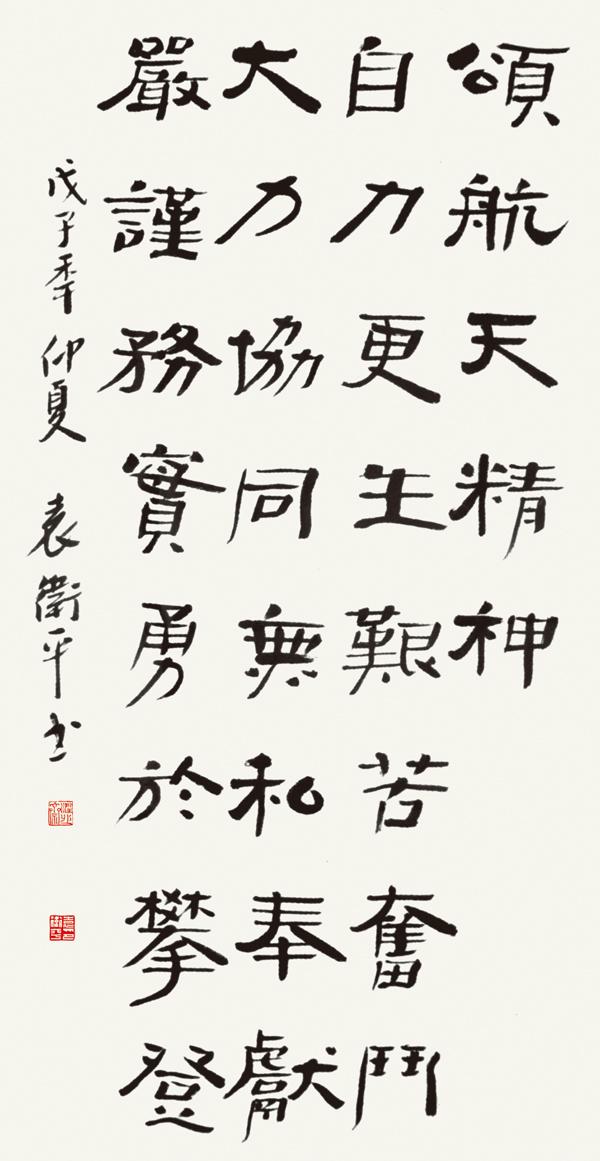 頌航天精神
自力更生艱苦奮鬥
大力協同無私奉獻
嚴謹務實勇於攀登
戊子秊仲夏 袁衛平书